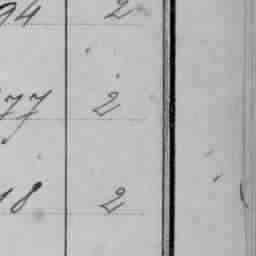 94 2
77 2
18 2